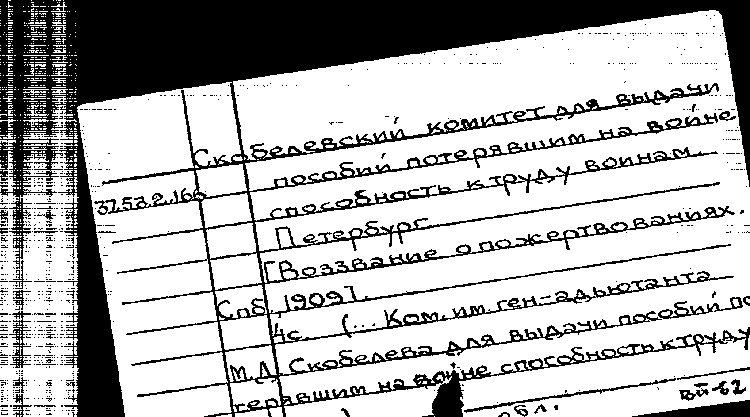 Скобелевский комитет для выдачи
пособий потерявшим на войне
37.53.2.166
способность к труду воинам.
Петербург
[Воззвание о пожертвованиях.
Спб., 1909].
4с. (... Ком. им. ген-адъютанта
М.Д. Скобелева для выдачи пособий по
терявшим на войне способность к труду
обл.
ВЙ-62